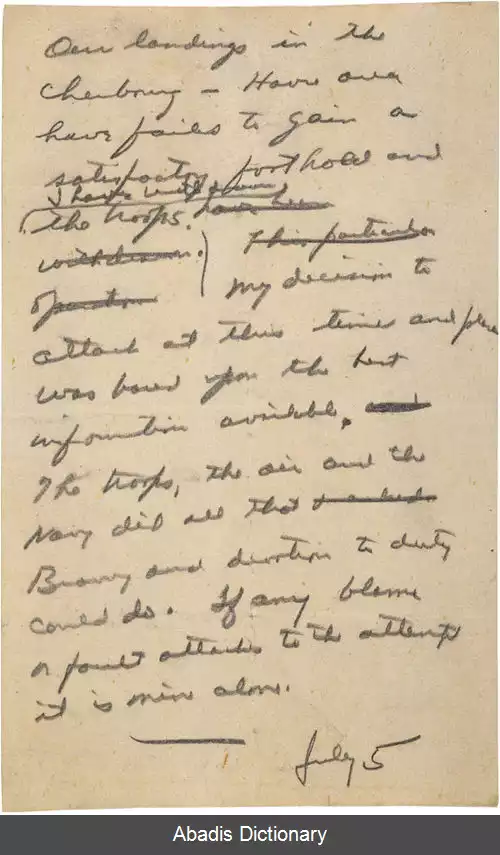 Our landings in the
Cherbourg - Havre area
have failed to gain a
satisfactory foothold and
I have withdrawn
the troops. have been
withdrawn. This particular
operation My decision to
attack at this time and place
was based upon the best
information available, and
The troops, the air and the
Navy did all that
Bravery and devotion to duty
could do. If any blame
or fault attaches to the attempt
it is mine alone.
July 5
Abadis Dictionary